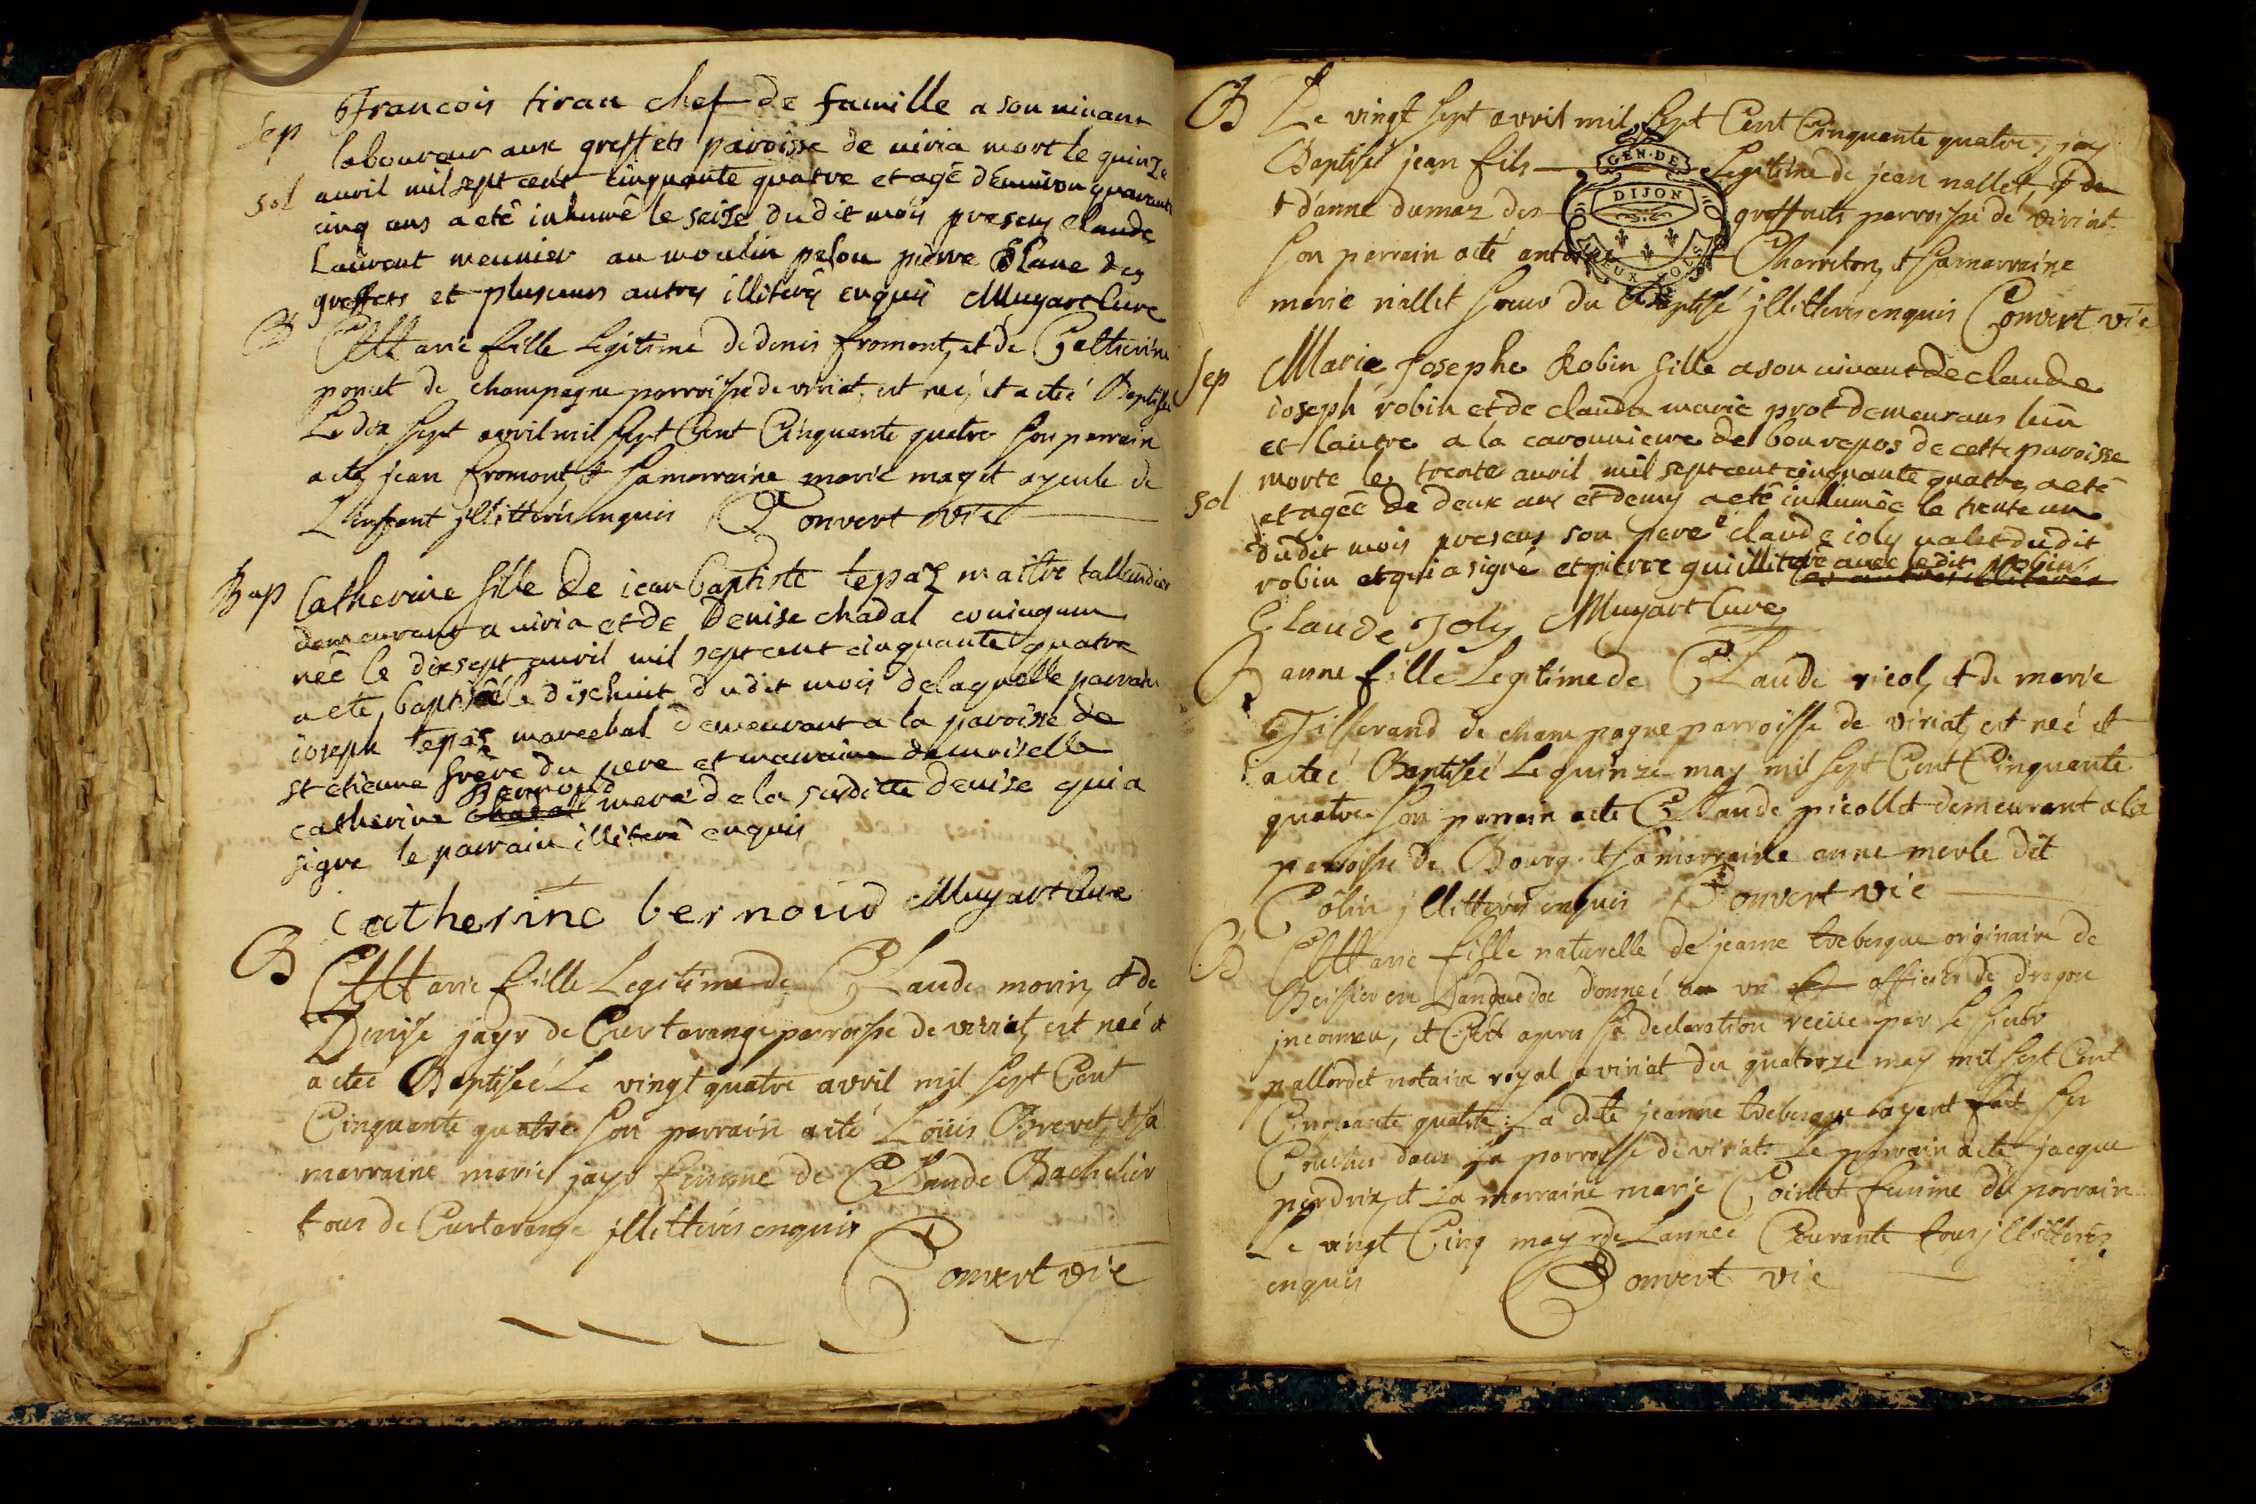 Sep
Francois tiran chef de famille a son vivant
laboureur aux greffets paroisse de viria mort le quinze
sol
avril mil sept cent cinquante quatre et agé d'environ quarante
cinq ans a eté inhumé le seise dudit mois presens claude
Laurent meunier au moulin pelou pierre Blanc des
greffets et plusieurs autres illiterés enquis Muyart Cure
B
Marie fille Legitime de denis fromont, et de Catherine
ponet de champagne parroisse de viriat, est neé, et a eteé Baptiseé
Le dix sept avril mil sept Cent Cinquante quatre son parrain
a eté jean fromont, & sa marraine marie magit ayeule de
L'enfant jllitterés enquis Convert vie
Bap
Catherine fille de iean baptiste tepaz maitre tallandier
demeurant a viria et de Denise chadal coniugum
neé le dixsept avril mil sept cent cinquante quatre
a eté baptisée le dixhuit dudit mois de laquelle parrain
ioseph tepaz marechal demeurant a la paroisse de
st etienne frere du pere et marraine demoiselle
Bernoud
catherine chadal mere de la susditte Denise qui a
signe le parrain illiteré enquis
catherine bernoud Muyart Cure
B
Marie fille Legitime de Claude morin, & de
Denise jayr de Curtarange parroisse de viriat, est neé &
a eteé Baptiseé Le vingt quatre avril mil sept Cent
Cinquante quatre son parrain a eté Loüis Brevet, & sa
marraine marie jayr femme de Claude Bachelier
tous de Curtarange jllitterés enquis
Convert vie
B
Le vingt sept avril mil sept Cent Cinquante quatre, jay
Baptisé jean fils Legitime de jean nallet, & de
& d'anne dumaz des greffets parroisse de viriat
son parrain a eté antoine Charreton, & sa marraine
marie nallet soeur du Baptisé jllitterés enquis Convert vie
GEN·DE
DIJON
DEUX SOLS
Sep
Marie Josephe Robin fille a son vivant de claude
ioseph robin et de claude marie prot demeurans lun
et lautre a la caronniere de bourepos de cette paroisse
morte le trente avril mil sept cent cinquante quatre a eté
sol
et ageé de deux ans et demy a eté inhumée le trente un
dudit mois presens son pere claude ioly valet dudit
robin et qui a signé et pierre gui illiteré avec ledit Robin
les autres illiterés
Claude Joly Muyart Cure
B
anne fille Legitime de Claude nicol, & de marie
Tisserand de champagne parroisse de viriat, est neé et
a eteé Baptiseé Le quinze may mil sept Cent Cinquante
quatre son parrain a eté Claude picollet demeurant a la
parroisse de Bourg & sa marraine anne merle dit
Colin jllitterés enquis Convert vie
B
Marie fille naturelle de jeanne trebesque originaire de
Besier en Languedoc donneé a un officier de dragon
jnconneu, et C'est apres sa declaration receüe par le sieur
pallordet notaire royal a viriat du quatorze may mil sept Cent
Cinquante quatre: La dite jeanne trebesque ayant fait ses
Couches dans La parroisse de viriat. Le parrain a eté jacque
perdrix, et La marraine marie Cointet femme du parrain
Le vingt Cinq may de L'anneé Courante tous jllitterés
enquis Convert vie